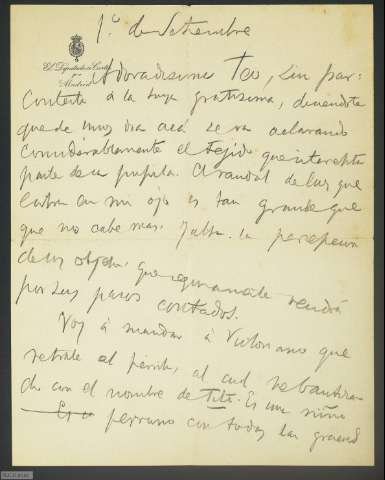 1.º de Setembre
El Diputado a Cortes
Madrid
Adoradisima Teo, Sin par:
Contesto á la tuya gratisima, diciendote
que de unos dias acá se va aclarando
considerablemente el tejido que intercepta
parte de la pupila. El raudal de luz que
entra en mi ojo es tan grande que
que no cabe mas. Falta la percepcion
de los objetos que seguramente vendrá
por sus pasos contados.
Voy á mandar á Victoriano que
retrate al perrito, al cual rebautiza
do con el nombre de Tito. Es un niño
perruno con todas las